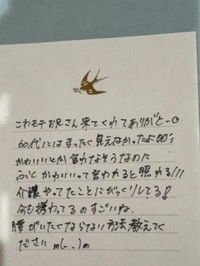 これモテお兄さん来てくれてありがとー☺
60代にはまったく見えなかったよ
かわいいとか言わなそうなのに
ふとかわいいって言われると照れる///
介護やってたことにびっくりしてる!
今も携わってるのすごいね
腰がいたくならない方法教えてく
ださい m(..)m